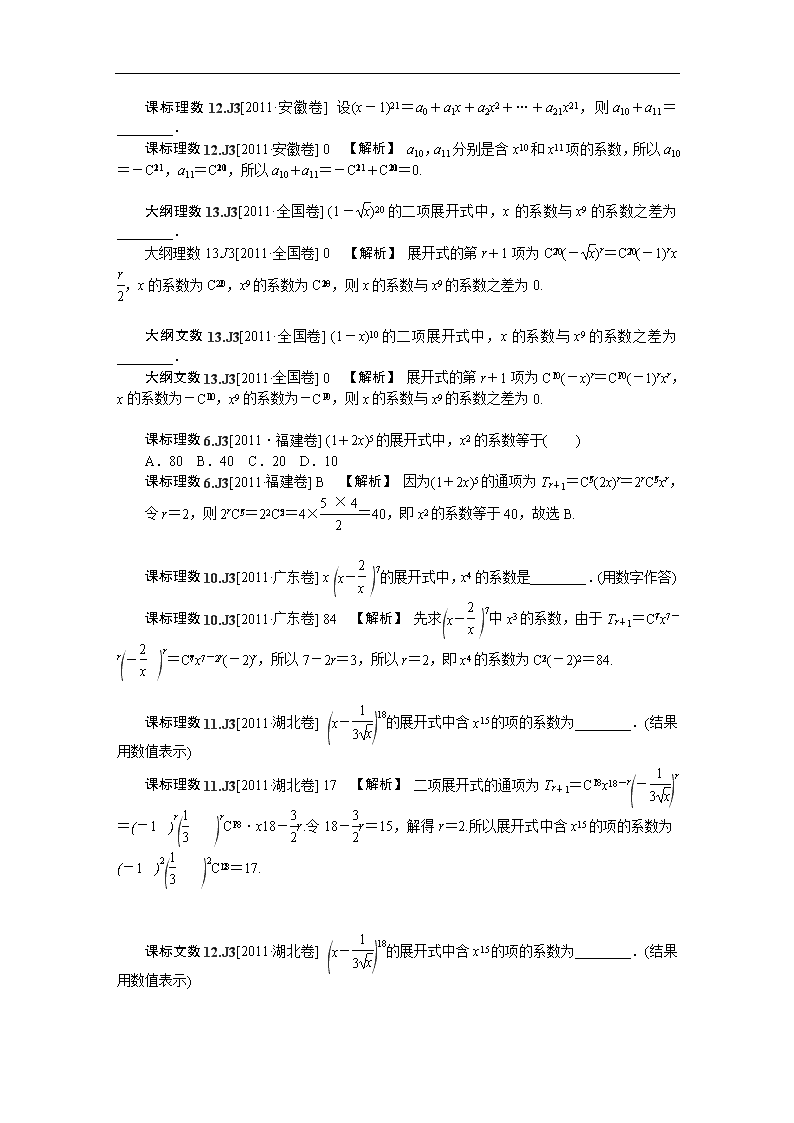 课标理数12.J3[2011·安徽卷] 设(x-1)21=a0+a1x+a2x2+…+a21x21，则a10+a11=
________.
课标理数12.J3[2011·安徽卷] 0 【解析】 a10,a11分别是含x10和x11项的系数,所以a10
=-C,a11=C,所以a10+a11=-C+C=0.
大纲理数13.J3[2011·全国卷] (1-√x)20的二项展开式中，x的系数与x9的系数之差为
________.
大纲理数13.J3[2011·全国卷] 0 【解析】 展开式的第r+1项为C(-√x)r=C(-1)rx
r/2，x的系数为C，x9的系数为C，则x的系数与x9的系数之差为0.
大纲文数13.J3[2011·全国卷] (1-x)10的二项展开式中，x的系数与x9的系数之差为
________.
大纲文数13.J3[2011·全国卷] 0 【解析】 展开式的第r+1项为C(-x)r=C(-1)rxr,
x的系数为-C，x9的系数为-C，则x的系数与x9的系数之差为0.
课标理数6.J3[2011·福建卷] (1+2x)5的展开式中，x2的系数等于( )
A．80 B．40 C．20 D．10
课标理数6.J3[2011·福建卷] B 【解析】 因为(1+2x)5的通项为Tr+1=C(2x)r=2rCxr,
令r=2，则2rC=22C=4×5×4/2=40，即x2的系数等于40，故选B.
课标理数10.J3[2011·广东卷] x(x-2/x)7的展开式中，x4的系数是________.(用数字作答)
课标理数10.J3[2011·广东卷] 84 【解析】 先求(x-2/x)7中x3的系数，由于Tr+1=Cx7-
r(-2/x)r=Cx7-2r(-2)r，所以7-2r=3，所以r=2，即x4的系数为C(-2)2=84.
课标理数11.J3[2011·湖北卷] (x-1/3√x)18的展开式中含x15的项的系数为________.(结果
用数值表示)
课标理数11.J3[2011·湖北卷] 17 【解析】 二项展开式的通项为Tr+1=Cx18-r(-1/3√x)r
=(-1)r(1/3)rC·x18-3/2r.令18-3/2r=15，解得r=2.所以展开式中含x15的项的系数为
(-1)2(1/3)2C=17.
课标文数12.J3[2011·湖北卷] (x-1/3√x)18的展开式中含x15的项的系数为________.(结果
用数值表示)